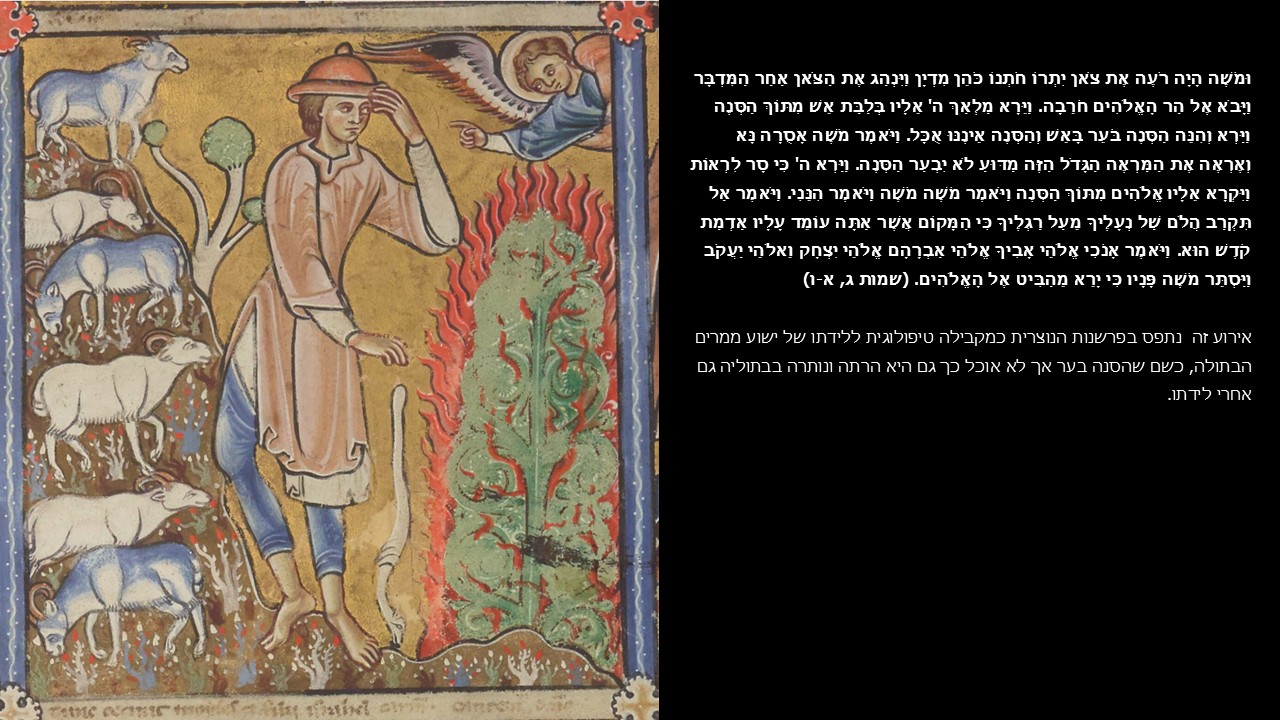 וּמֹשֶׁה הָיָה רֹעֶה אֶת צֹאן יִתְרוֹ חֹתְנוֹ כֹּהֵן מִדְיָן וַיִּנְהַג אֶת הַצֹּאן אַחַר הַמִּדְבָּר
וַיָּבֹא אֶל הַר הָאֱלֹהִים חֹרֵבָה. וַיֵּרָא מַלְאַךְ ה' אֵלָיו בְּלַבַּת אֵשׁ מִתּוֹךְ הַסְּנֶה
וַיַּרְא וְהִנֵּה הַסְּנֶה בֹּעֵר בָּאֵשׁ וְהַסְּנֶה אֵינֶנּוּ אֻכָּל. וַיֹּאמֶר מֹשֶׁה אָסֻרָה נָּא
וְאֶרְאֶה אֶת הַמַּרְאֶה הַגָּדֹל הַזֶּה מַדּוּעַ לֹא יִבְעַר הַסְּנֶה. וַיַּרְא ה' כִּי סָר לִרְאוֹת
וַיִּקְרָא אֵלָיו אֱלֹהִים מִתּוֹךְ הַסְּנֶה וַיֹּאמֶר מֹשֶׁה מֹשֶׁה וַיֹּאמֶר הִנֵּנִי. וַיֹּאמֶר אַל
תִּקְרַב הֲלֹם שַׁל נְעָלֶיךָ מֵעַל רַגְלֶיךָ כִּי הַמָּקוֹם אֲשֶׁר אַתָּה עוֹמֵד עָלָיו אַדְמַת
קֹדֶשׁ הוּא. וַיֹּאמֶר אָנֹכִי אֱלֹהֵי אָבִיךָ אֱלֹהֵי אַבְרָהָם אֱלֹהֵי יִצְחָק וֵאלֹהֵי יַעֲקֹב
וַיַּסְתֵּר מֹשֶׁה פָּנָיו כִּי יָרֵא מֵהַבִּיט אֶל הָאֱלֹהִים. (שמות ג, א-ו)
אירוע זה נתפס בפרשנות הנוצרית כמקבילה טיפולוגית ללידתו של ישוע ממרים
הבתולה, כשם שהסנה בער אך לא אוכל כך גם היא הרתה ונותרה בבתוליה גם
אחרי לידתו.